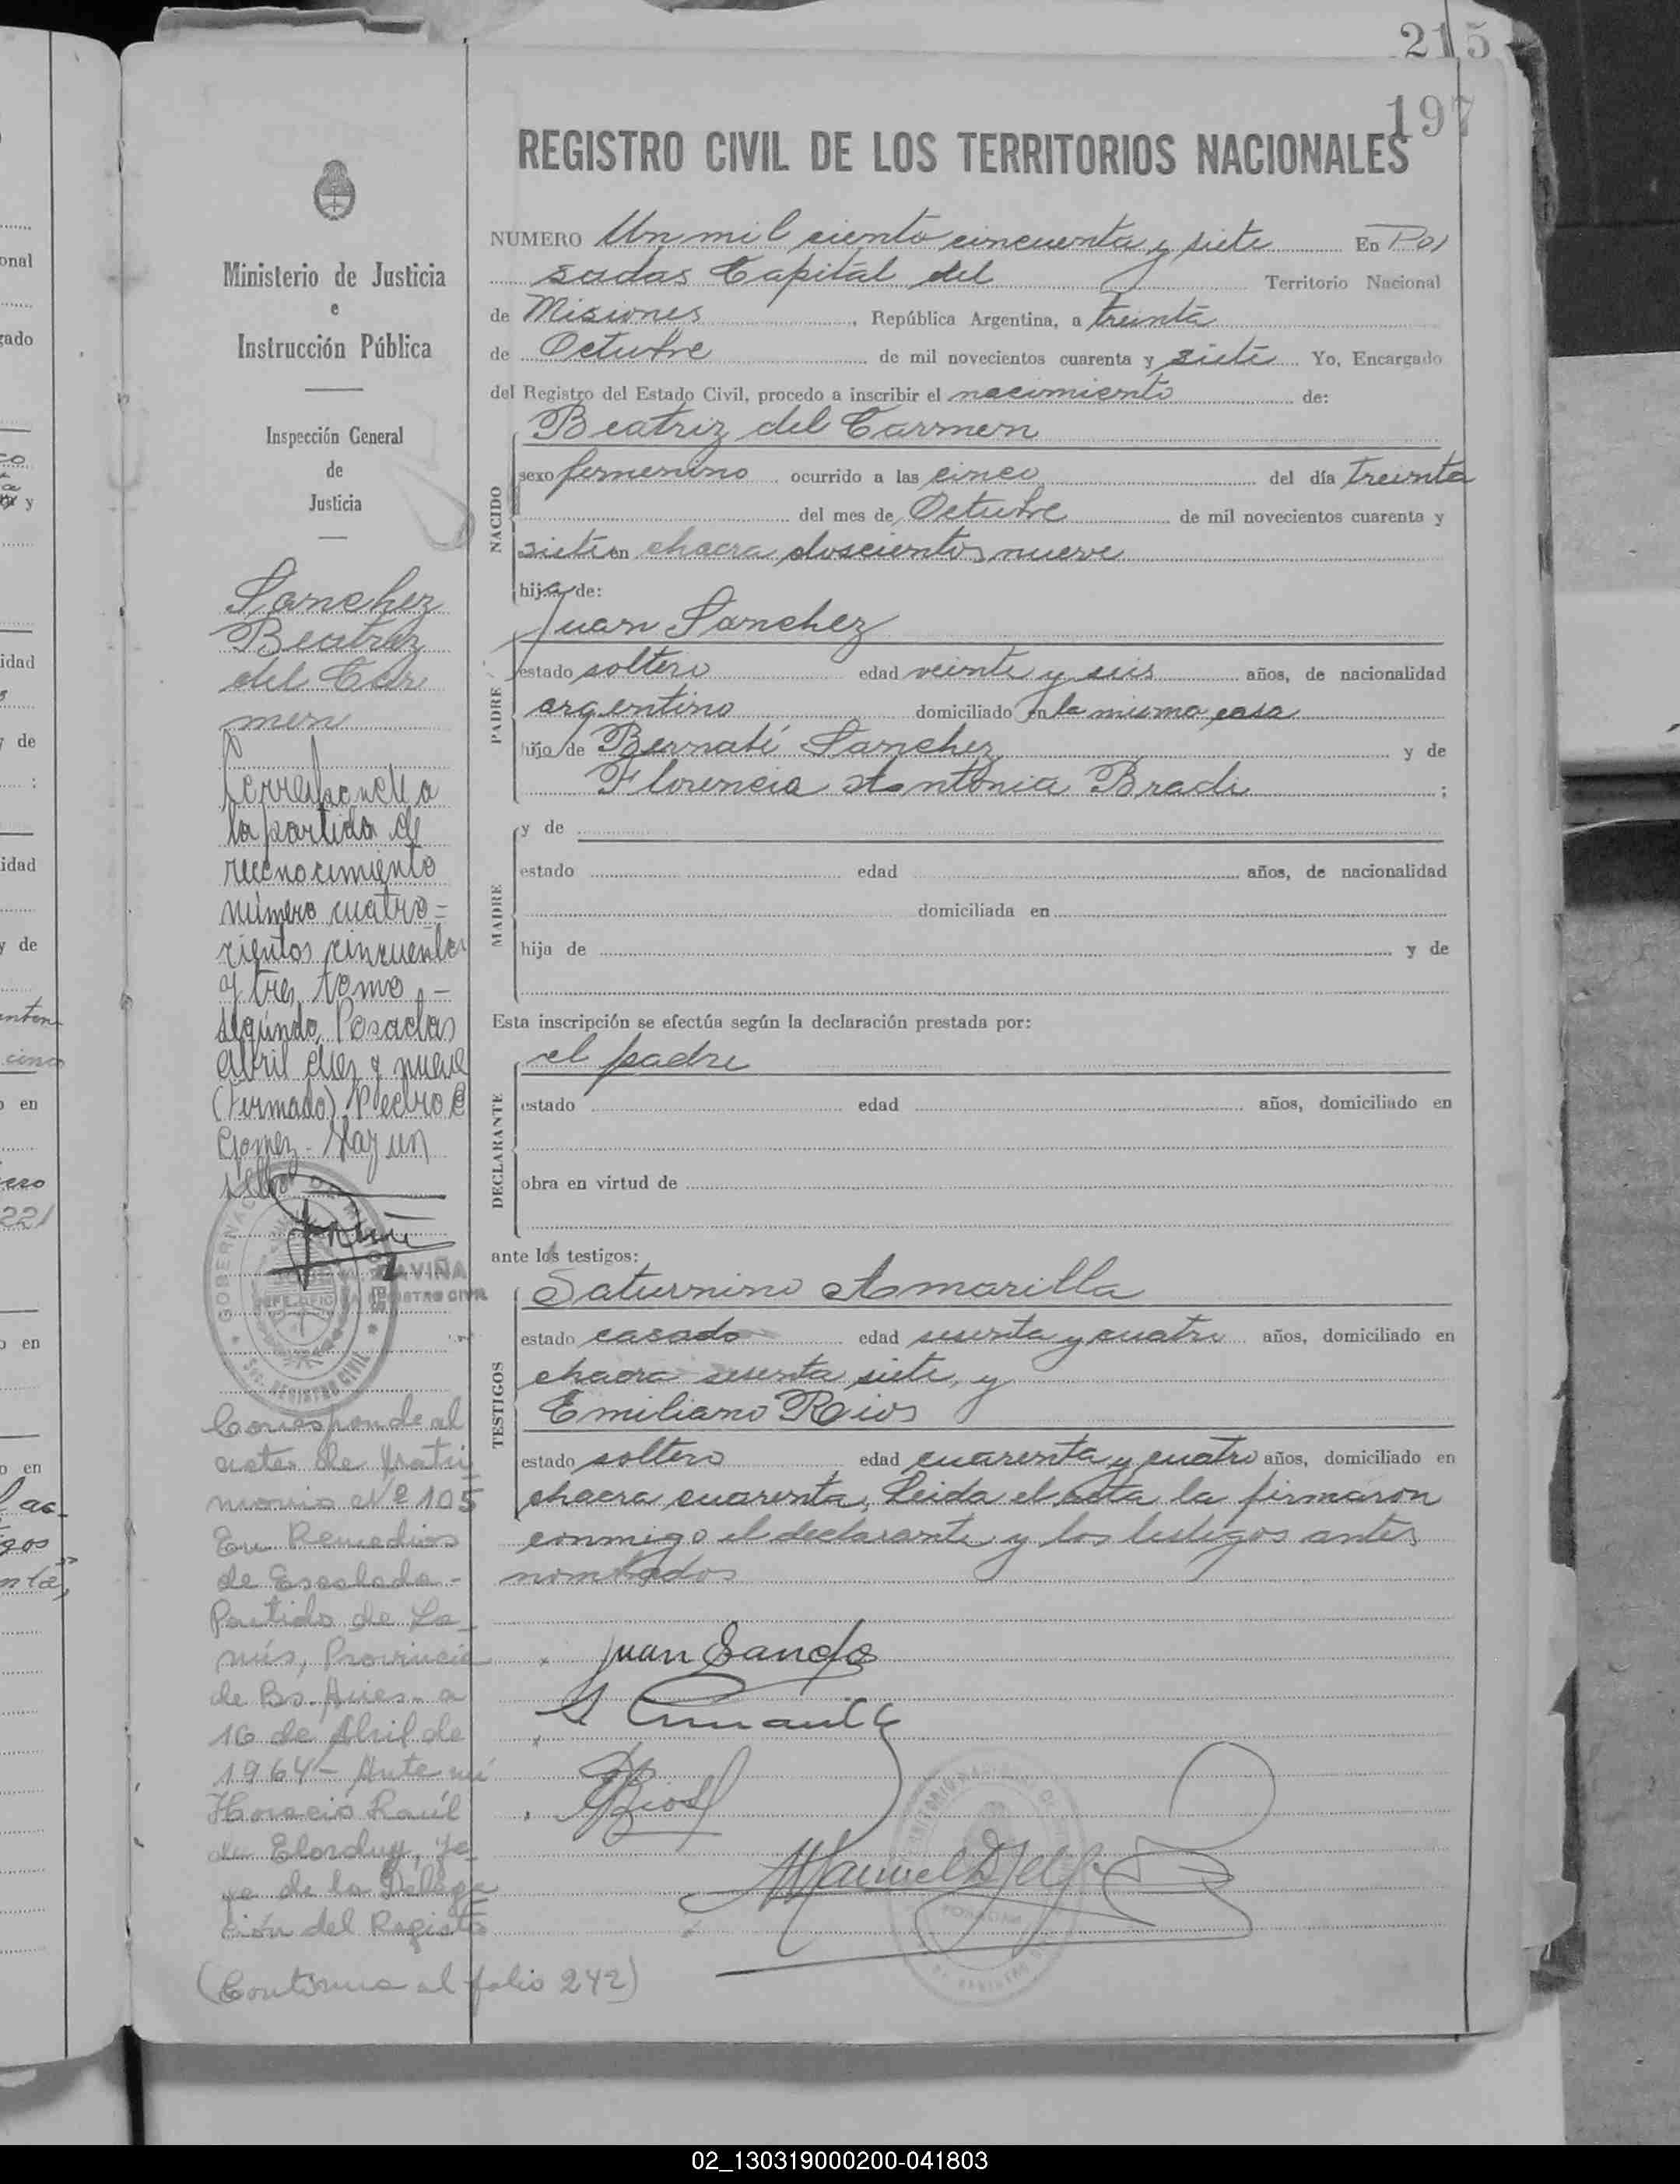 215
197
REGISTRO CIVIL DE LOS TERRITORIOS NACIONALES
Ministerio de Justicia
e
Instrucción Pública
Inspección General
de
Justicia
Sanchez
Beatriz
del Car
men
Corresponde a
la partida de
reconocimiento
número cuatro=
cientos cincuenta
y tres, tomo -
segundo, Posadas
abril diez y nueve
(Firmado) Pedro C
Gomez - Hay un
sello
GOBERNACION DE MISIONES
SEC. REGISTRO CIVIL
Corresponde al
acta de matri
monio Nº 105
En Remedios
de Escalada -
Partido de La
nús, Provincia
de Bs. Aires a
16 de Abril de
1964 - Ante mi
Horacio Raúl
de Elorduy, Je
fe de la Delega
ción del Registro
(Continua al folio 242)
NUMERO Un mil ciento cincuenta y siete En Pos
sadas Capital del Territorio Nacional
de Misiones, República Argentina, a treinta
de Octubre de mil novecientos cuarenta y siete Yo, Encargado
del Registro del Estado Civil, procedo a inscribir el nacimiento de:
NACIDO
Beatriz del Carmen
sexo femenino ocurrido a las cinco del día treinta
del mes de Octubre de mil novecientos cuarenta y
siete en chacra doscientos nueve
hija de:
PADRE
Juan Sanchez
estado soltero edad veinte y seis años, de nacionalidad
argentino domiciliado en la misma casa
hijo de Bernabé Sanchez y de
Florencia Antonia Bradi ;
MADRE
y de
estado edad años, de nacionalidad
domiciliada en
hija de y de
Esta inscripción se efectúa según la declaración prestada por:
DECLARANTE
el padre
estado edad años, domiciliado en
obra en virtud de
ante los testigos:
TESTIGOS
Saturnino Amarilla
estado casado edad sesenta y cuatro años, domiciliado en
chacra sesenta siete, y
Emiliano Rios
estado soltero edad cuarenta y cuatro años, domiciliado en
chacra cuarenta, Leida el acta la firmaron
conmigo el declarante y los testigos antes
nombrados
Juan Sanche
E Rios
02_130319000200-041803